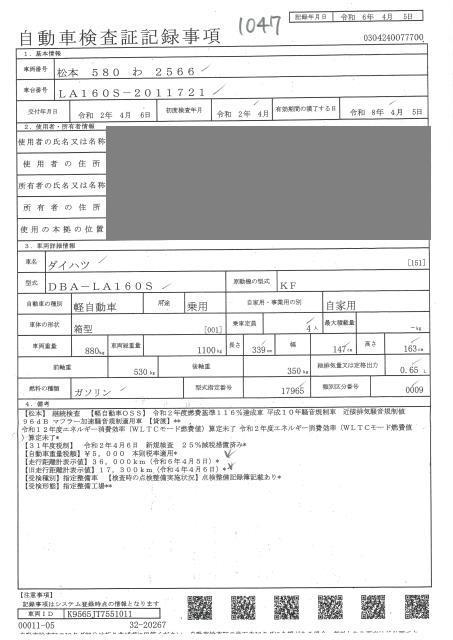 1047
記録年月日 令和 6年 4月 5日
自動車検査証記録事項
0304240077700
1. 基本情報
車両番号 松本 580 わ 2566
車台番号 LA160S-2011721
交付年月日 令和 2年 4月 6日 初度検査年月 令和 2年 4月 有効期間の満了する日 令和 8年 4月 5日
2. 使用者・所有者情報
使用者の氏名又は名称
使用者の住所
所有者の氏名又は名称
所有者の住所
使用の本拠の位置
3. 車両詳細情報
車名 ダイハツ [151]
型式 DBA-LA160S 原動機の型式 KF
自動車の種別 軽自動車 用途 乗用 自家用・事業用の別 自家用
車体の形状 箱型 [001] 乗車定員 4人 最大積載量 -kg
車両重量 880kg 車両総重量 1100kg 長さ 339cm 幅 147cm 高さ 163cm
前軸重 530kg 後軸重 350kg 総排気量又は定格出力 0.65 L
燃料の種類 ガソリン 型式指定番号 17965 類別区分番号 0009
4. 備考
【松本】 継続検査 【軽自動車OSS】 令和2年度燃費基準116%達成車 平成10年騒音規制車 近接排気騒音規制値
96dB マフラー加速騒音規制適用車 【貸渡】**
令和12年度エネルギー消費効率(WLTCモード燃費値)算定未了 令和2年度エネルギー消費効率(WLTCモード燃費値
)算定未了*
【31年度税制】 令和2年4月6日 新規検査 25%減税措置済み*
【自動車重量税額】¥5,000 本則税率適用*
【走行距離計表示値】36,000km(令和6年4月5日)*
【旧走行距離計表示値】17,300km(令和4年4月6日)*
【受検種別】指定整備車 【検査時の点検整備実施状況】点検整備記録簿記載あり*
【受検形態】指定整備工場**
【注意事項】
記録事項はシステム登録時点の情報となります
車両ID K9565JT7551011
00011-05 32-20267